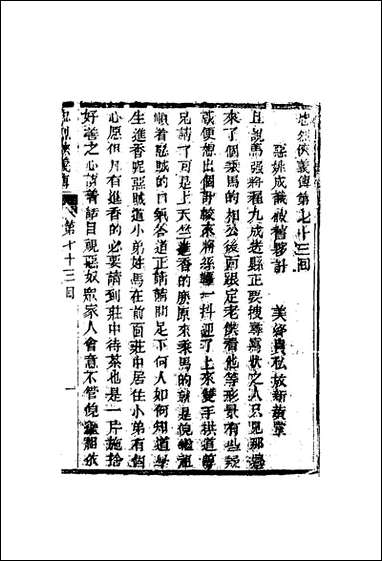 忠烈俠義傳第七十三回
惡姚成識破舊夥計　美絳貞私放新黃堂
且說馬強將翟九成送縣正要搜尋寫狀之人只見那邊
來了個乘馬的相公後面跟定老僕看他等形景有些疑
惑便想出個計較來將絲韁一抖迎了上來雙手拱道尊
兄請了可是上天竺進香的麽原來乘馬的就是倪繼祖
順着惡賊的口氣答道正是請問足下何人如何知道學
生進香呢惡賊道小弟姓馬在前面莊中居住小弟有個
心愿但凡有進香的必要請到莊中待茶也是一片施捨
好善之心說着話目視惡奴眾家人會意不管倪繼祖依
忠烈俠義傳
第七十三回
一